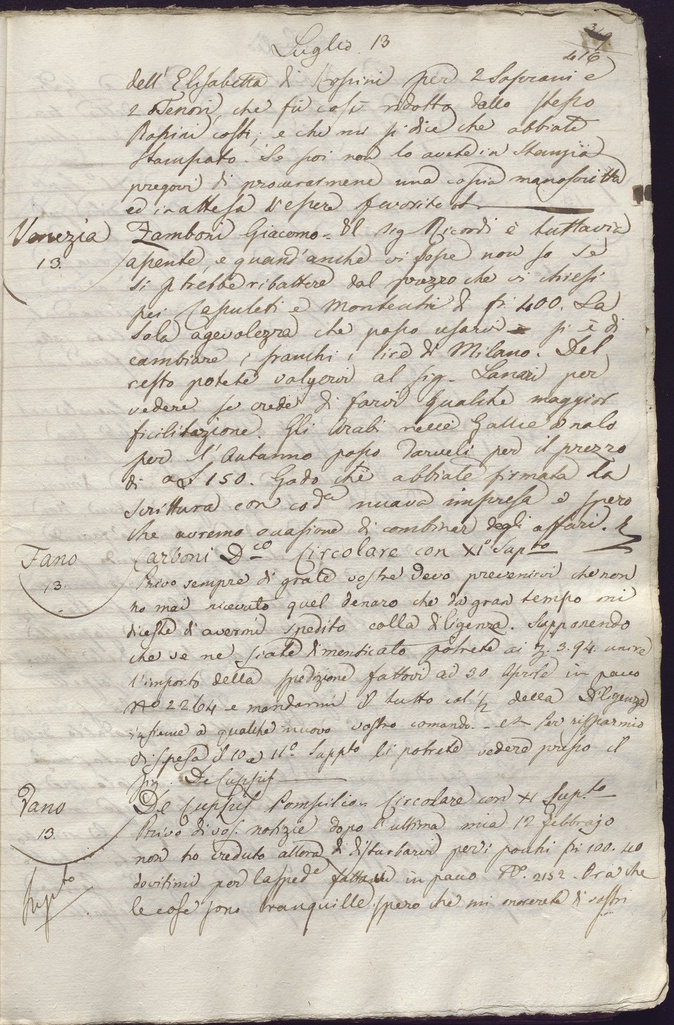 Luglio. 13
416
dell'Elisabetta di Rossini per 2 Soprani e
2 Tenori, che fù così ridotto dallo stesso
Rossini costì, e che mi si dice che abbiate
stampato. Se poi non lo avete in stampa
pregovi di procurarmene una copia manoscritta
ed in attesa d'essere favorito
Venezia
13.
Zamboni Giacomo. Il Sig Ricordi è tuttavia
assente, e quand'anche vi fosse non so se
si potrebbe ribattere dal prezzo che vi chiesi
pei Capuleti e Montecchi di fi 400. La
sola agevolezza che posso usarvi si è di
cambiare i franchi i lire di Milano. Del
resto potete volgervi al Sig. Lanari per
vedere se crede di farvi qualche maggior
ficilitazione. Gli Arabi nelle Gallie
per l'Autunno posso darveli per il prezzo
di 150. Godo che abbiate firmata la
scrittura con cod.a nuova impresa e spero
che avremo ocasione di combinar degli affari.
Fano
13.
Carboni D.co Circolare con XI.o Supto
Privo sempre di grate vostre devo prevenirvi che non
ho mai ricevuto quel denaro che da gran tempo mi
diceste di avermi spedito colla diligenza. Supponendo
che ve ne siate dimenticato potrete ai 3.94. unire
l'importo della spedizione fattavi ad 30 Aprile in pacco
No 2264 e mandarmi il tutto col ½ della Diligenza
insieme a qualche nuovo vostro comando. Per risparmio
di spesa il 10 e 11.o Suppto li potrete vedere presso il
Sig. De Cuppis
Fano
13.
De Cuppis Pompilio. Circolare con XI Supto
Privo di vos. notizie dopo l'ultima mia 12 febbrajo
non ho creduto allora di disturbarvi per i pochi fi 100.40
dovutimi per la sped.e fattavi in pacco No. 2152. Ora che
le cose sono tranquille spero che mi onorerete di vostri
Supto